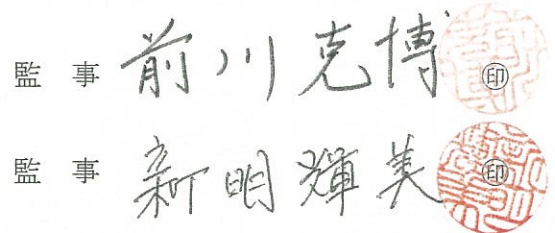 監事 前川克博 ㊞
監事 新明輝美 ㊞